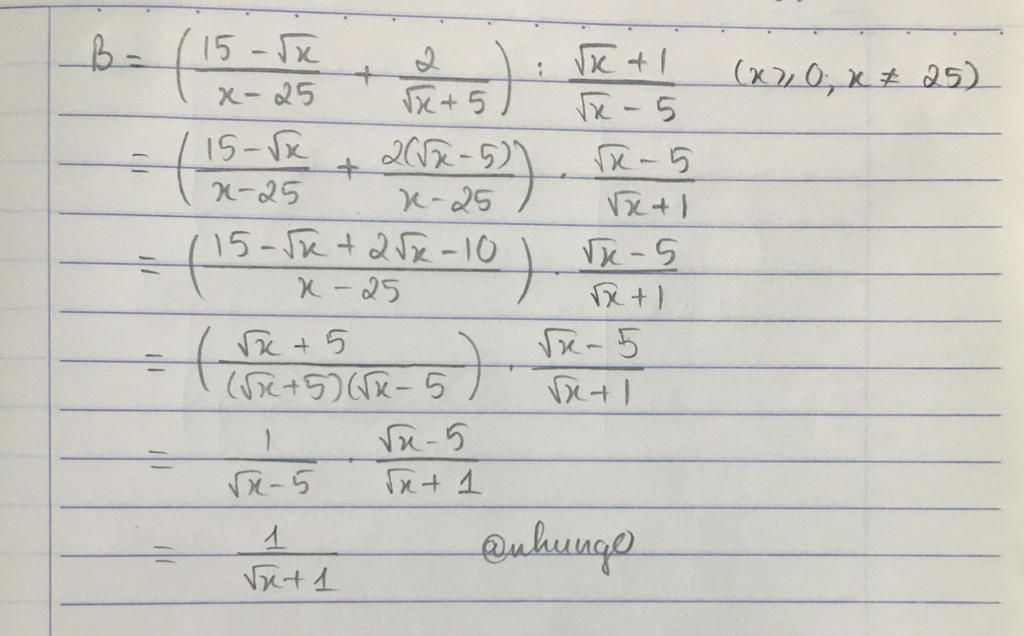 B = ( (15 - √x)/(x - 25) + 2/(√x + 5) ) : (√x + 1)/(√x - 5) (x ≥ 0, x ≠ 25)
= ( (15 - √x)/(x - 25) + 2(√x - 5)/(x - 25) ) . (√x - 5)/(√x + 1)
= ( (15 - √x + 2√x - 10)/(x - 25) ) . (√x - 5)/(√x + 1)
= ( (√x + 5)/((√x + 5)(√x - 5) ) . (√x - 5)/(√x + 1)
= 1/(√x - 5) . (√x - 5)/(√x + 1)
= 1/(√x + 1) @nhungo